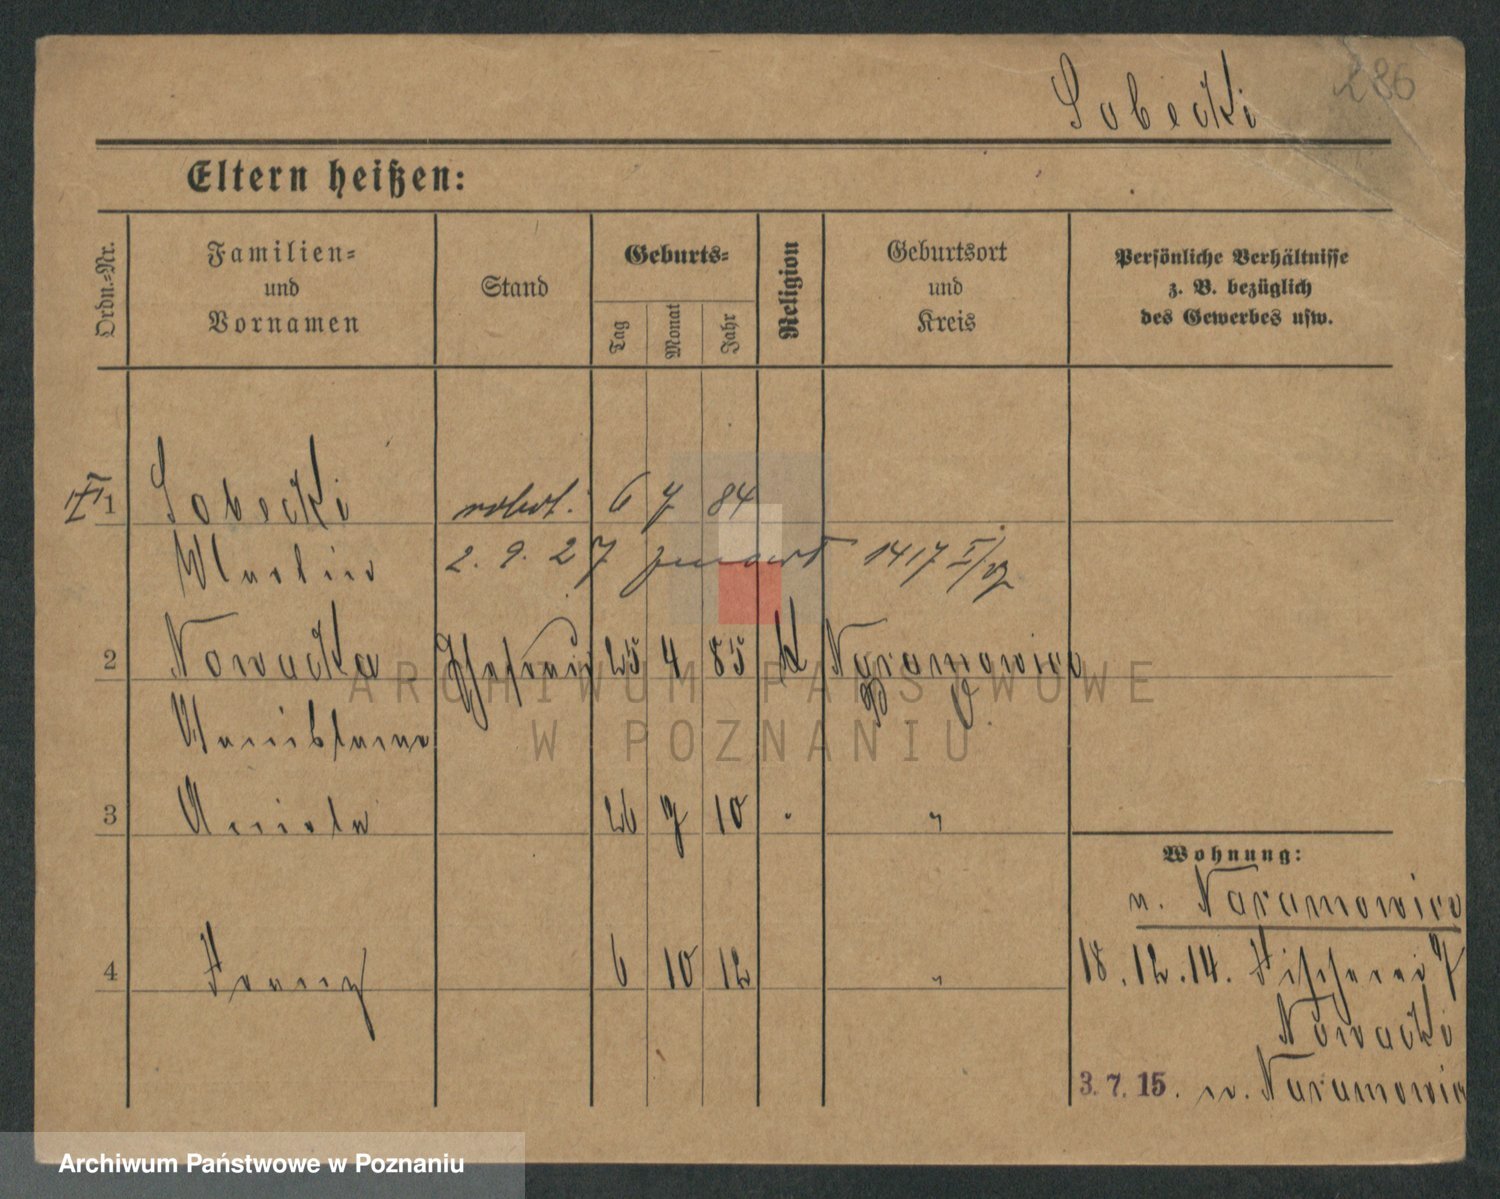 Sobecki 286
Eltern heißen:
Ordn.-Nr.
Familien-
und
Vornamen
Stand
Geburts-
Tag
Monat
Jahr
Religion
Geburtsort
und
Kreis
Persönliche Verhältnisse
z. B. bezüglich
des Gewerbes usw.
1 Sobecki robot. 6 7 84
Martin 2. 9. 27 1417
2 Nowacka Ehefrau 25 4 85 K Naramowice
P. O.
3 Aniela 26 7 10 " "
Wohnung:
n. Naramowice
4 Franz 6 10 12 "
18.12.14. Fischerei 7
Nowacki
3.7.15. n. Naramowice
ARCHIWUM PAŃSTWOWE
W POZNANIU
Archiwum Państwowe w Poznaniu